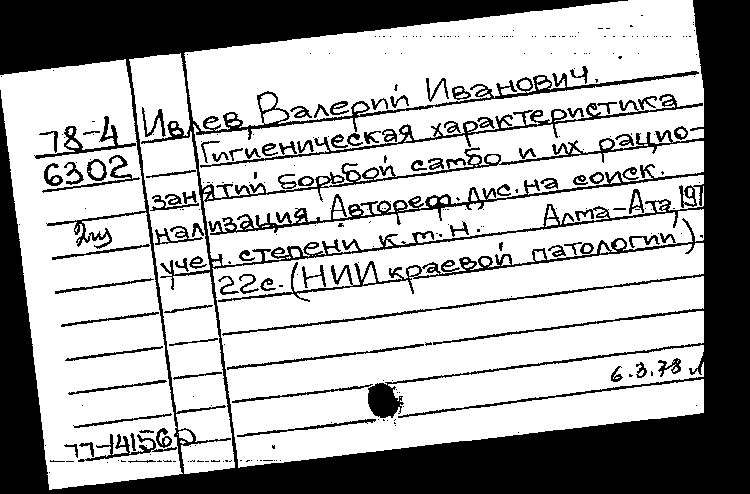 78-4 Ивлев, Валерий Иванович.
6302 Гигиеническая характеристика
занятий борьбой самбо и их рацио-
2 нализация. Автореф. дис. на соиск.
учен. степени к.т.н. Алма-Ата, 197
22с. (НИИ краевой патологии).
6.3.78
77-14156